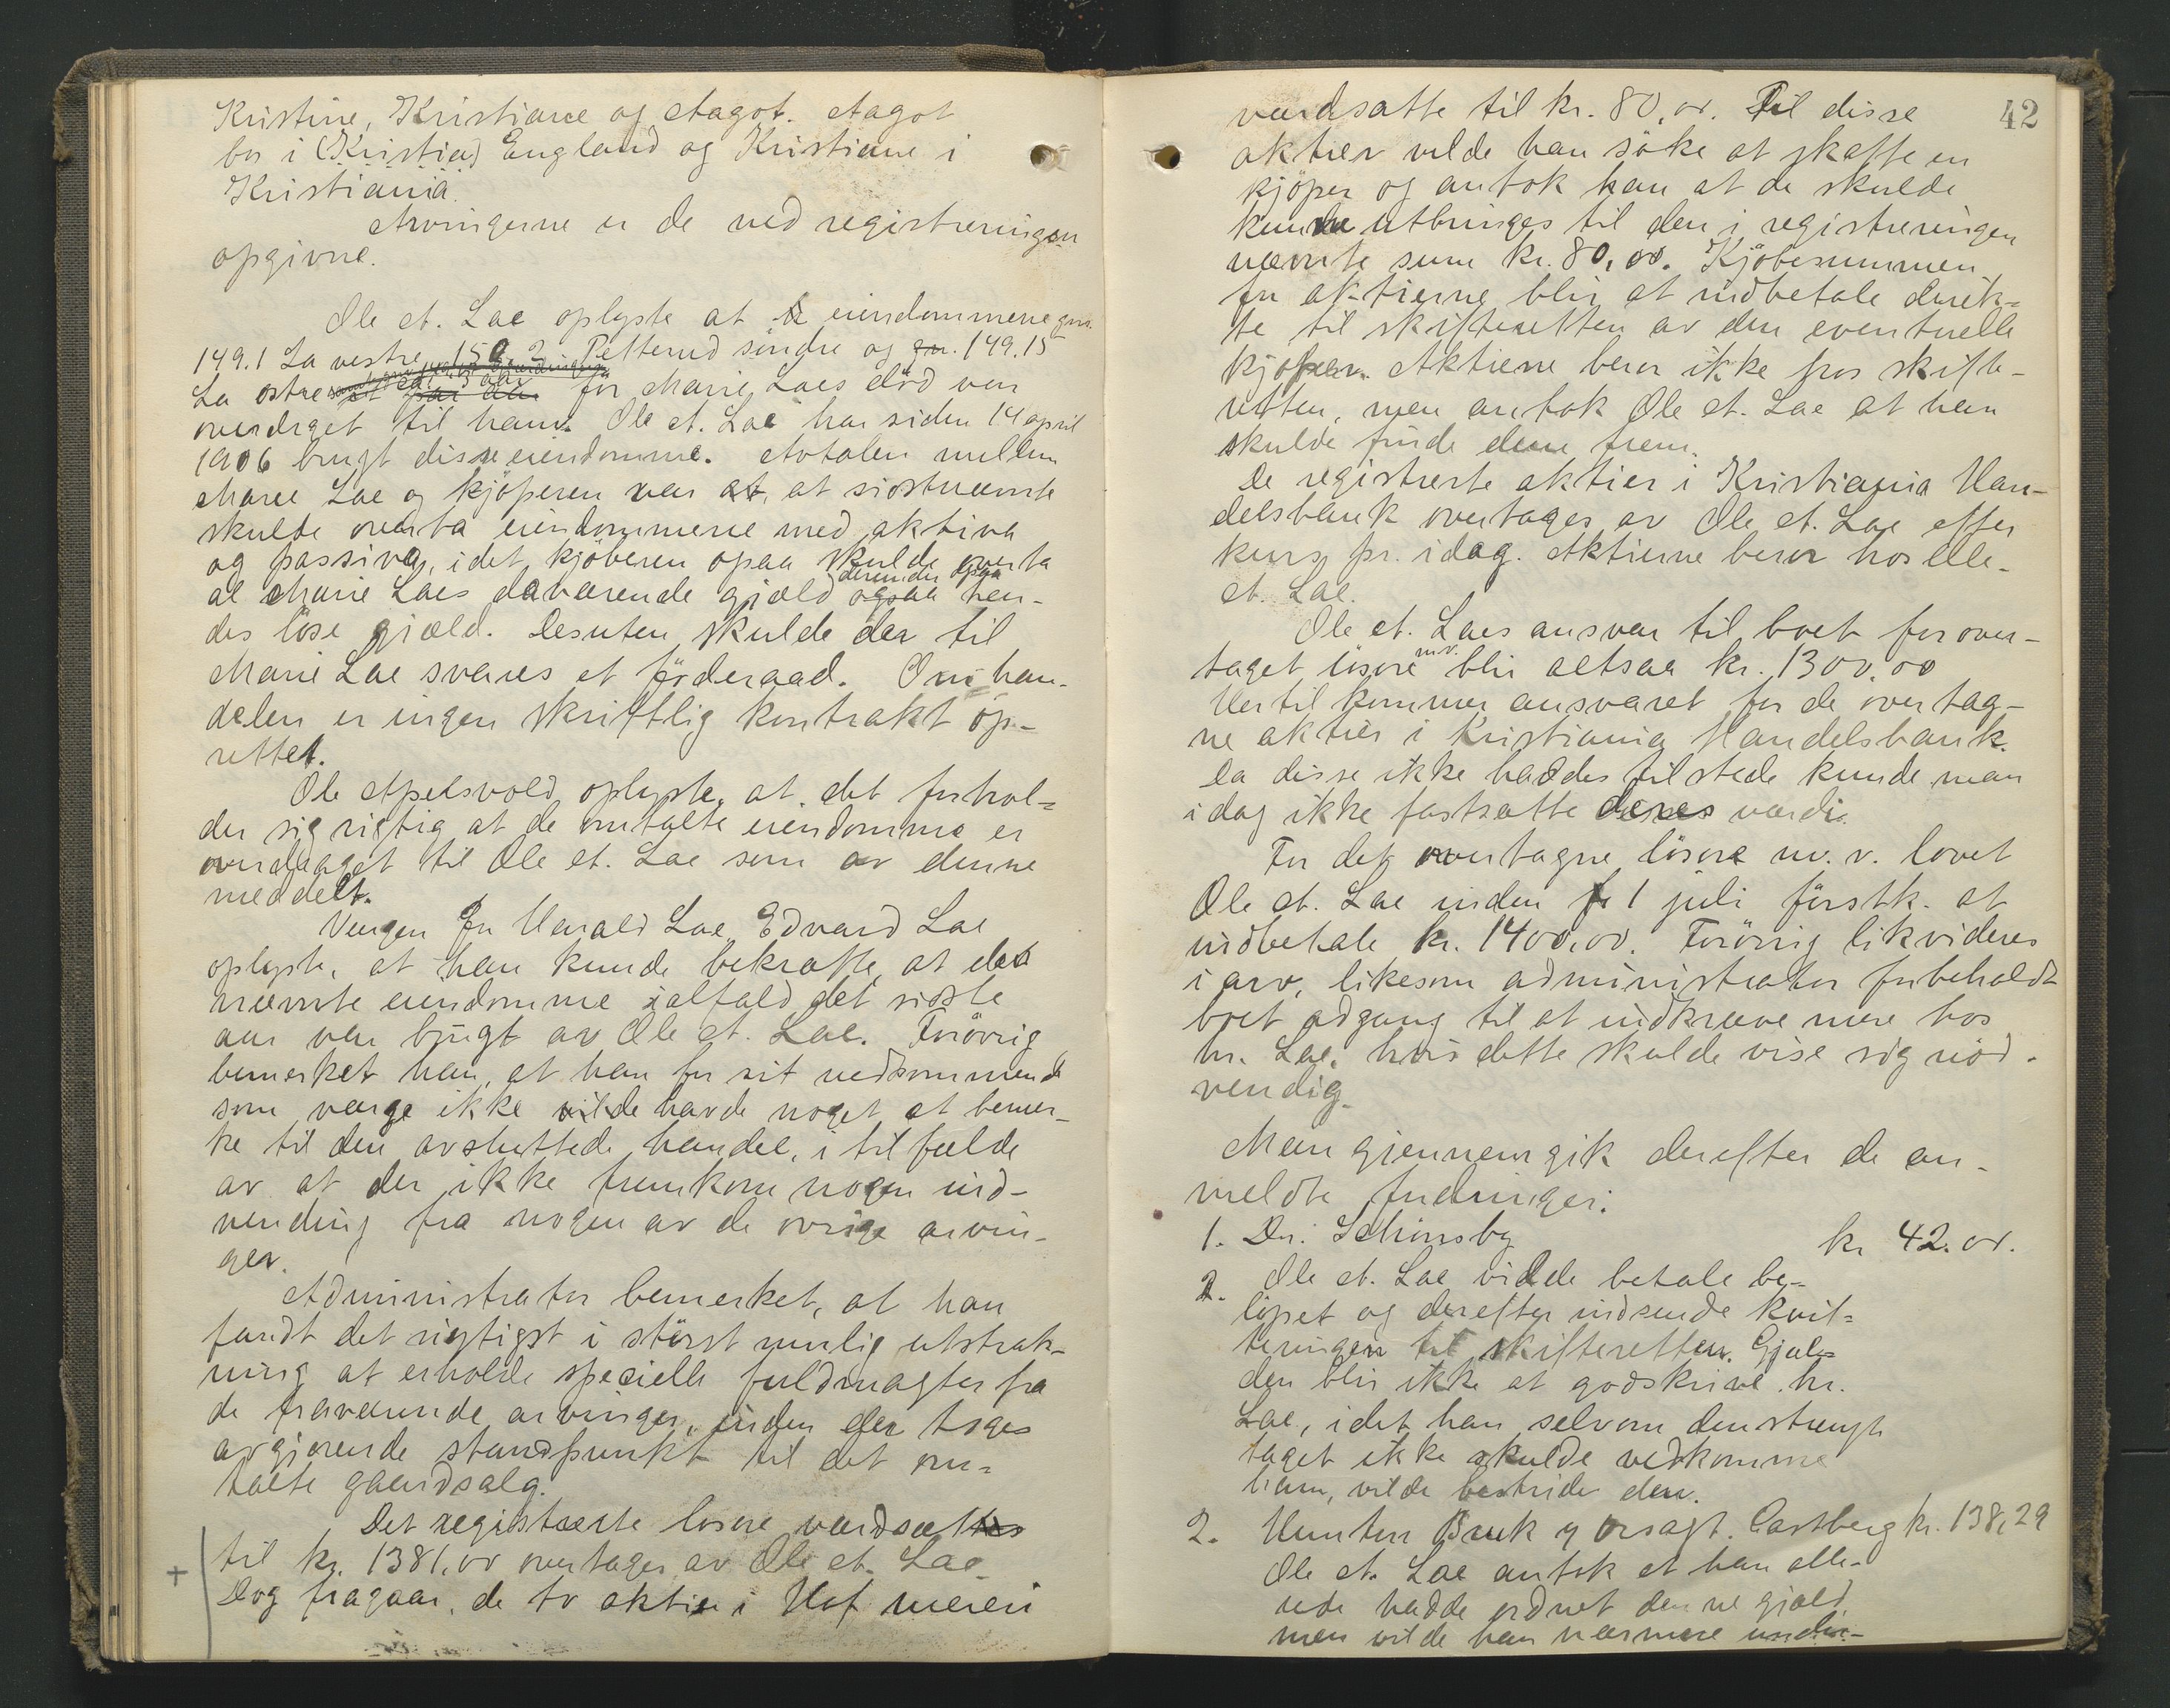 Kristine, Kristiane og Aagot. Aagot
bor i (Kristia) England og Kristiane i
Kristiania.
Arvingerne er de ved registreringen
opgivne.
Ole A. Lae oplyste at eiendommene gnr.
149.1 La vestre, 150.2 Petterud söndre og gn. 149.15
La östre for Marie Laes död var
overdraget til ham. Ole A. Lae har siden 14 april
1906 brugt disse eiendomme. Avtalen mellem
Marie Lae og kjöperen var at, at sidstnævnte
skulde overta eiendommene med aktiva
og passiva, idet kjöberen opaa skulde overta
al Marie Laes daværende gjæld ogsaa derunder opaa hen-
des löse gjæld. Desuten skulde der til
Marie Lae svares et föderaad. Om han-
delen er ingen skriftlig kontrakt op-
rettet.
Ole Apelsvold oplyste, at det forhol-
der sig rigtig at de omtalte eiendomme er
overdraget til Ole A. Lae som av denne
meddelt.
Vergen for Harald Lae, Edvard Lae
oplyste, at han kunde bekræfte at det
nævnte eiendomme ialfald det sidste
aar var brugt av Ole A. Lae. Forövrig
bemerket han, at han for sit vedkommende
som verge ikke vilde havde noget at bemer-
ke til den avsluttede handel, i tilfælde
av at der ikke fremkom nogen ind-
vending fra nogen av de övrige arvin-
ger.
Administrator bemerket, at han
fandt det rigtigst i störst mulig utstræk-
ning at erholde specielle fuldmagter fra
de fraværende arvinger, inden der toges
avgjörende standpunkt til det om-
talte gaardsalg.
Det registrerte lösöre værdsattes
til kr. 1381,00 overtages av Ole A. Lae.
Dog fragaar de to aktier i Hof meieri
42
værdsatte til kr. 80,00. Til disse
aktier vilde han söke at skaffe en
kjöper og antok han at de skulde
kunne utbringes til den i registreringen
nævnte sum kr. 80,00. Kjöbesummen
for aktierne blir at indbetale direk-
te til skifteretten av den eventuelle
kjöper. Aktierne beror ikke hos skifte-
retten, men antok Ole A. Lae at han
skulde finde dem frem.
De registrerte aktier i Kristiania Han-
delsbank overtages av Ole A. Lae efter
kurs pr. idag. Aktierne beror hos Ole
A. Lae.
Ole A. Laes ansvar til boet for over-
taget lösöre m.v. blir altsaa kr. 1300,00
Hertil kommer ansvaret for de overtag-
ne aktier i Kristiania Handelsbank.
Da disse ikke haddes tilstede kunde man
idag ikke fastsætte deres værdi.
For det overtagne lösöre m.v. lovet
Ole A. Lae inden 1 juli förstk. at
indbetale kr. 1400,00. Forövrig likvideres
i arv, likesom administrator forbeholdt
boet adgang til at indkræve mere hos
hr. Lae, hvis dette skulde vise sig nöd-
vendig.
Man gjennemgik derefter de an-
meldte fordringer:
1. Dr. Schönsby kr 42.00.
Ole A. Lae vilde betale be-
löpet og derefter indsende kvit-
teringen til skifteretten. Gjæl-
den blir ikke at godskrive hr.
Lae, idet han selvom den strengt
taget ikke skulde vedkomme
ham, vilde bestride den.
2. Hunton Bruk v/ Orsagf. Castberg kr. 138,29
Ole A. Lae antok at han alle-
rede hadde ordnet denne gjæld,
men vilde han nærmere under-